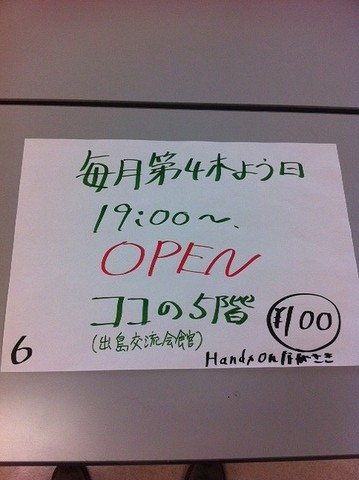 毎月第4木よう日
19:00〜.
OPEN
ココの5階
(出島交流会館)
¥100
6
Hands On ながさき